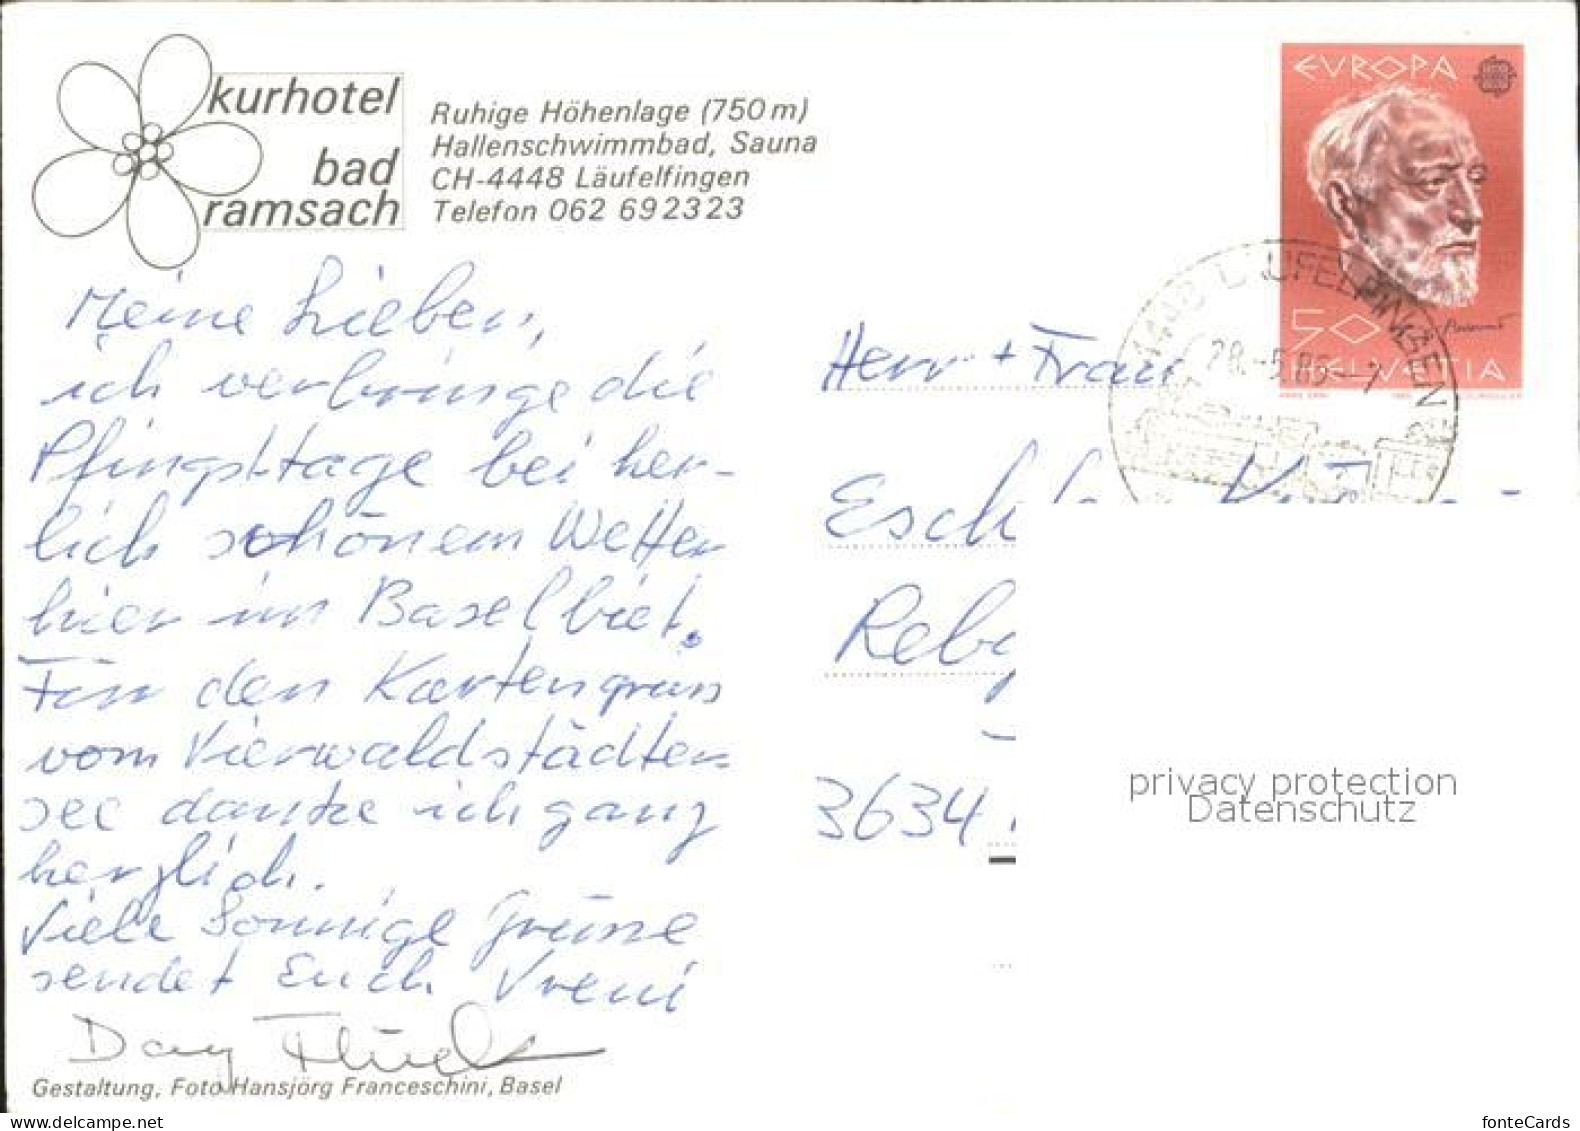 kurhotel
bad
ramsach
Ruhige Höhenlage (750 m)
Hallenschwimmbad, Sauna
CH-4448 Läufelfingen
Telefon 062 69 23 23
EVROPA
50
HELVETIA
4448 LÄUFELFINGEN
28.-5.85-
Meine Lieben,
ich verbringe die
Pfingsttage bei her-
lich schönem Wetter
hier im Baselbiet.
Für den Kartengruss
vom Vierwaldstädter-
see danke ich ganz
herzlich.
Viele sonnige Grüsse
sendet Euch Vreni
Dany
Gestaltung, Foto Hansjörg Franceschini, Basel
Herr + Frau
3634
privacy protection
Datenschutz
www.delcampe.net
fonteCards